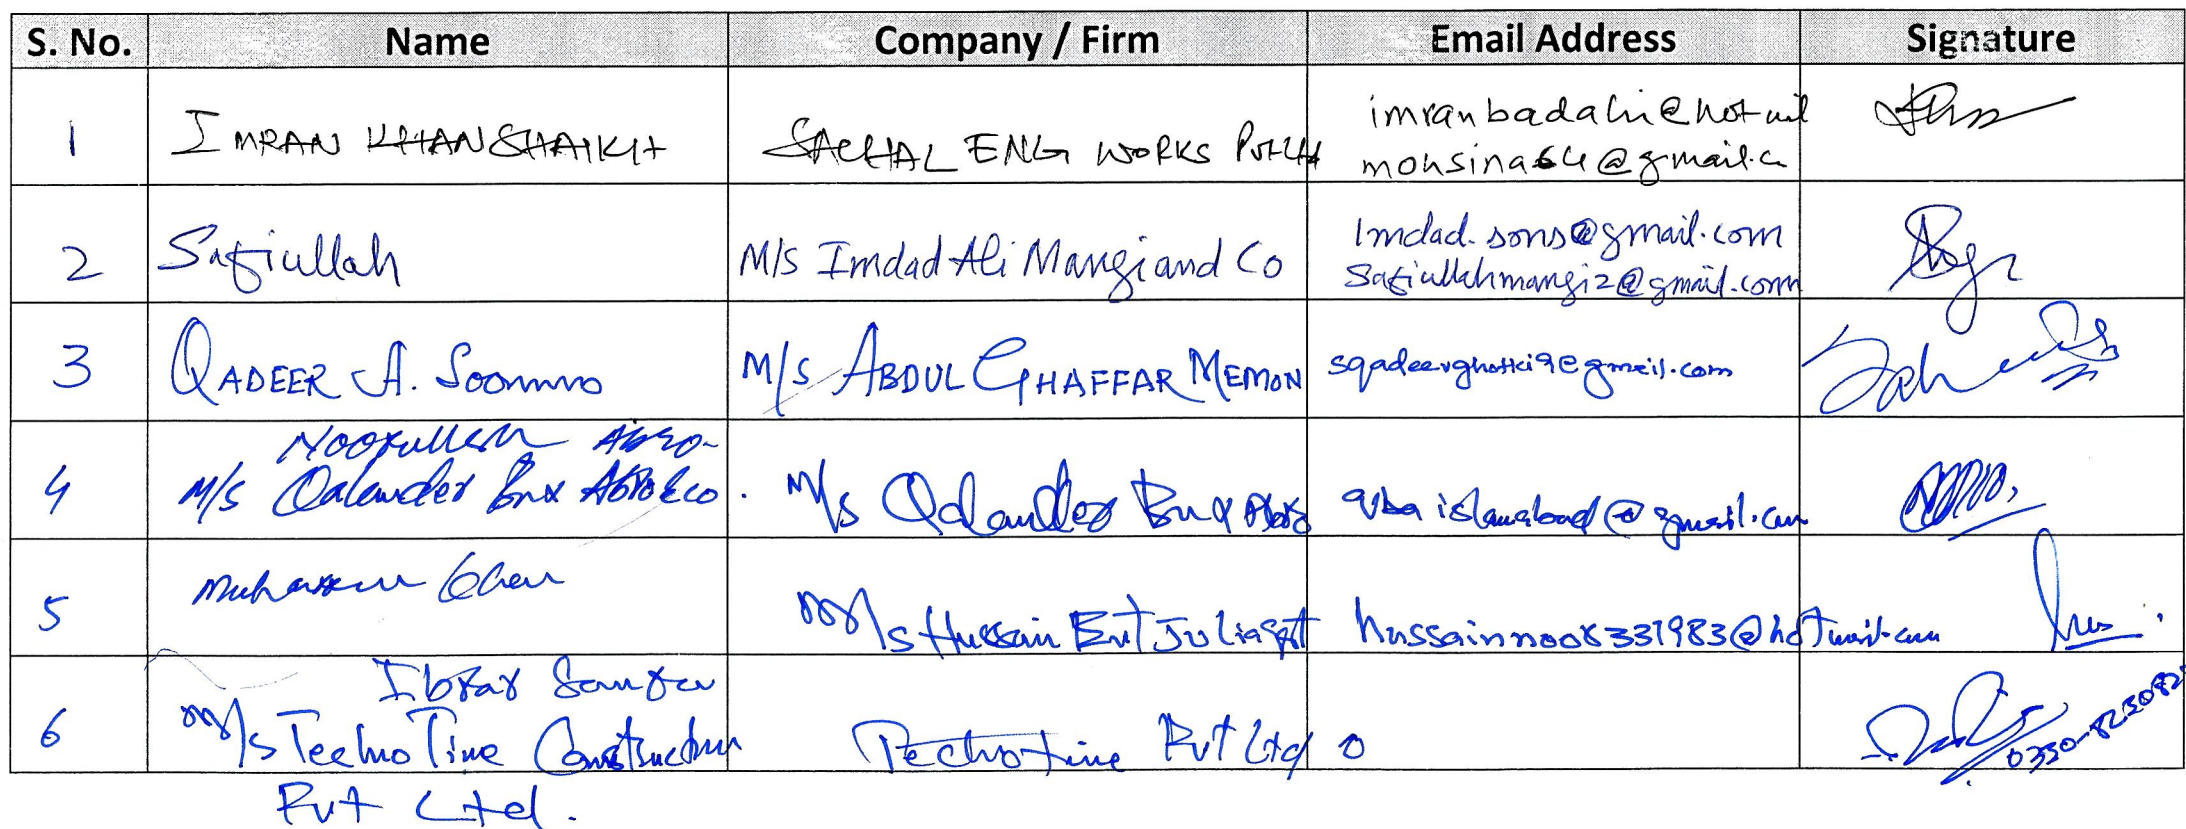 S. No. Name Company / Firm Email Address Signature
1 IMRAN KHAN SHAIKH SACHAL ENG WORKS Pvt Ltd imranbadahi@hotmail
mohsina64@gmail.c
2 Safiullah M/S Imdad Ali Mangi and Co Imdad.sons@gmail.com
Safiullahmangi2@gmail.com
3 QADEER A. Soomro M/S ABDUL GHAFFAR MEMON sqadeerghotki9@gmail.com
Noorullah Abro
4 M/S Qalander Bux Abro & co. M/s Qalander Bux Abro qbaislamabad@gmail.com
5 Khan M/s Hussain Ent hussainnoor331983@hotmail.com
Ibrar
6 M/s Techno Time Construction Techno time Pvt Ltd 0
Pvt Ltd.